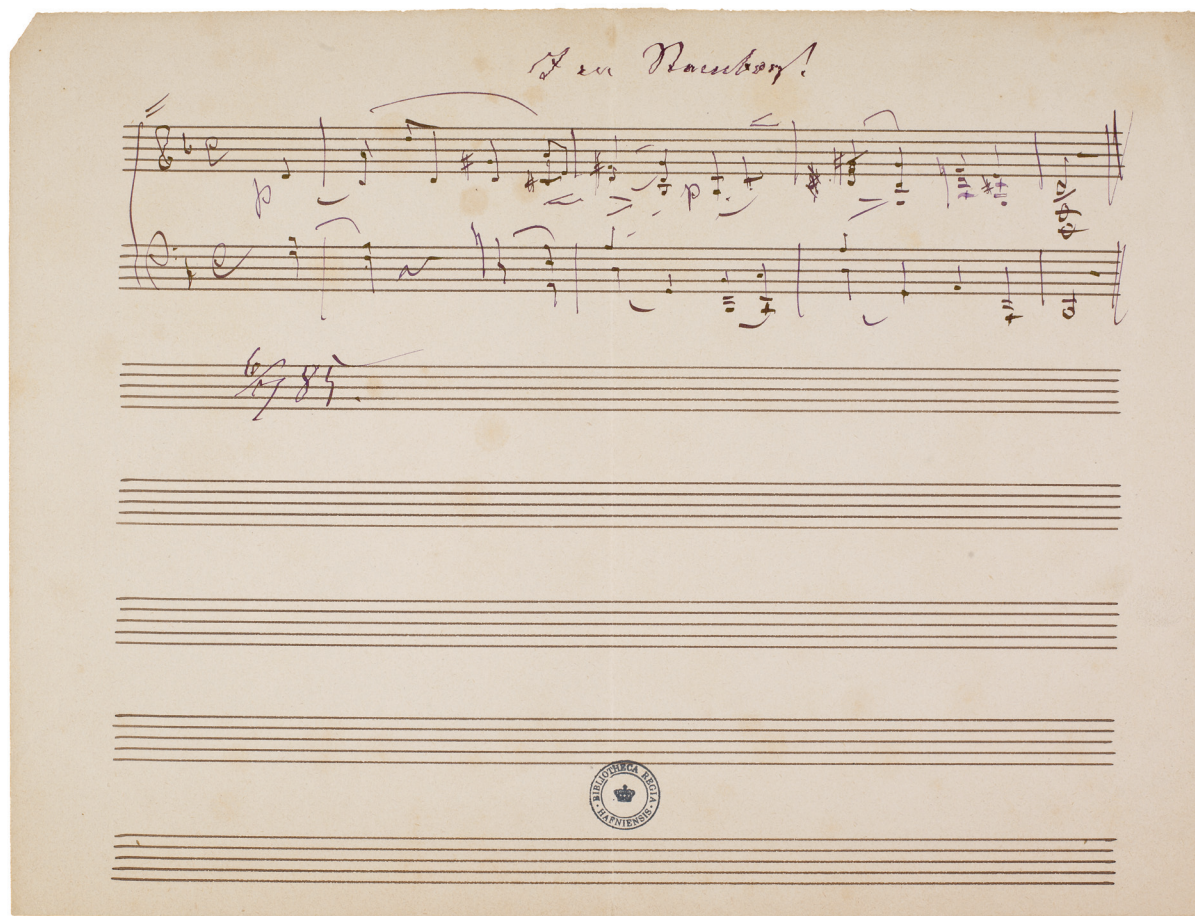 I en Stambog!
p
p
6/7 85.
BIBLIOTHECA REGIA
HAFNIENSIS